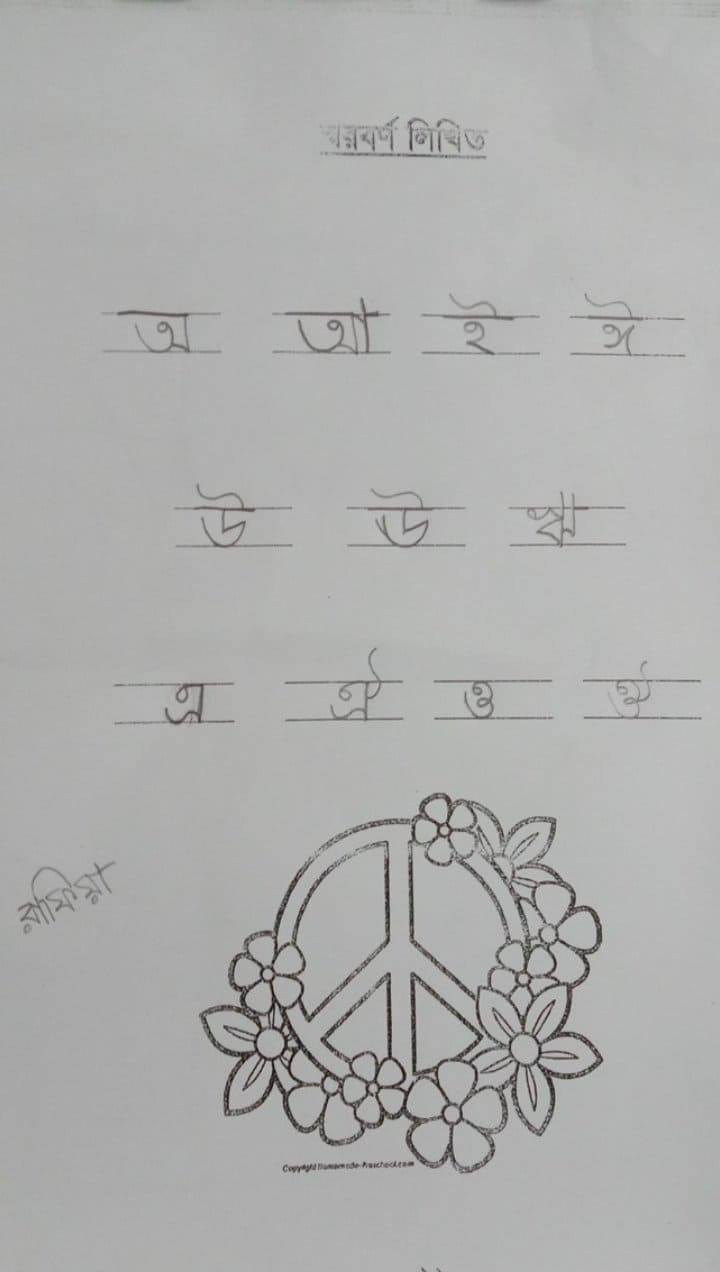 স্বরবর্ণ লিখিত
অ আ ই ঈ
উ ঊ ঋ
এ ঐ ও ঔ
রাফিয়া
Copyright Homemade-Preschool.com